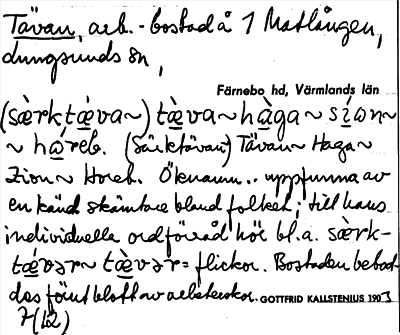 Tävan, arb.-bostad å 1 Matlången,
Lungsunds sn,
Färnebo hd, Värmlands län
(sæ̀rktǽva~) tæ̀va~hàga~síωn~
~hώreb. (Särktävan) Tävan~Haga~
Zion~Horeb. Öknamn.. uppfunna av
en känd skämtare bland folket; till hans
individuella ordförråd hör bl.a. sæ̀rk-
tǽvər~tæ̀vər= flickor. Bostaden bebod-
des förut blott av arbeterskor. GOTTFRID KALLSTENIUS 1903
7(12)